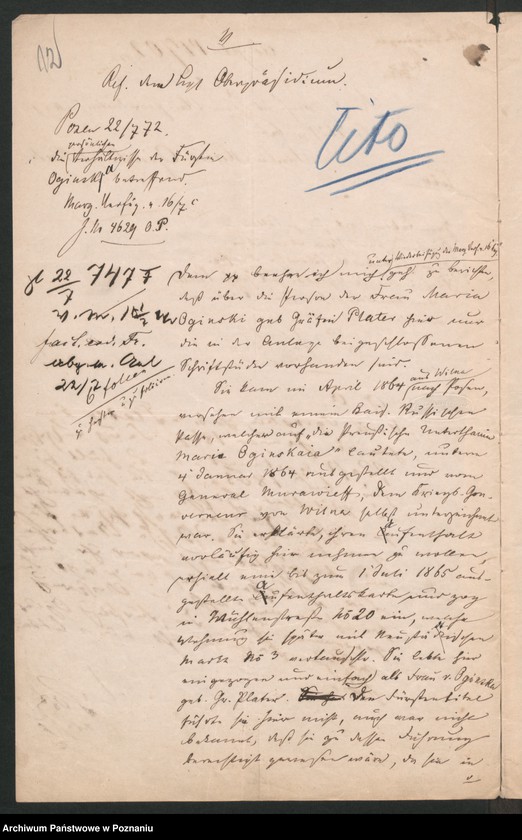 12
Ref. dem Kgl Oberpräsidium.
Cito
Posen 22/7 72.
die persönlichen Verhältnisse der Fürstin
Oginska betreffend.
Marg. Verfüg. v. 16/7 c
J. No 4629 O.P.
22/7 747 I
22/7 6 folien
unter Wiederbeifügung der Marg. Verf. v. 16/7
Dem pp beehre ich mich geh. zu berichten,
daß über die Person der Frau Maria
Oginski geb Gräfin Plater hier nur
die in der Anlage beigeschlossenen
Schriftstücke vorhanden sind.
Sie kam im April 1864 aus Wilna nach Posen,
versehen mit einem Kais. Russischen
Passe, welcher auf „die Preußische Unterthanin
Maria Oginskaia" lautete, unterm
4 Januar 1864 ausgestellt und vom
General Murawieff, dem Kriegs-Gou-
verneur von Wilna selbst unterzeichnet
war. Sie erklärte, ihren Aufenthalt
vorläufig hier nehmen zu wollen,
erhielt eine bis zum 1 Juli 1865 aus-
gestellte Aufenthaltskarte und zog
in Mühlenstraße No 20 ein, welche
Wohnung sie später mit Neustädtischen
Markt No 3 vertauschte. Sie lebte hier
eingezogen und einfach als Frau v. Oginska
geb. Gr. Plater. Den Fürstentitel
führte sie hier nicht, auch war nicht
bekannt, daß sie zu dessen Führung
berechtigt gewesen wäre, da sie in
Archiwum Państwowe w Poznaniu